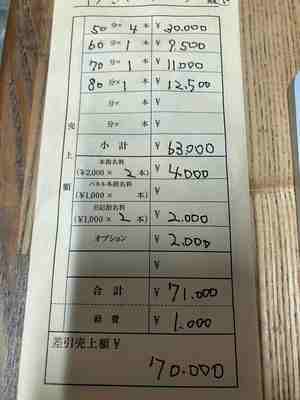 50 分× 4 本 ¥ 30.000
60 分× 1 本 ¥ 9,500
70 分× 1 本 ¥ 11000
80 分× 1 本 ¥ 12,500
分× 本 ¥
分× 本 ¥
売上額
小計 ¥ 63000
本指名料
(¥2,000 × 2 本) ¥ 4.000
パネル本指名料
(¥1,000 × 本) ¥
(¥1,000 × 2 本) ¥ 2.000
オプション ¥ 2.000
¥
合計 ¥ 71.000
経費 ¥ 1.000
差引売上額 ¥
70.000